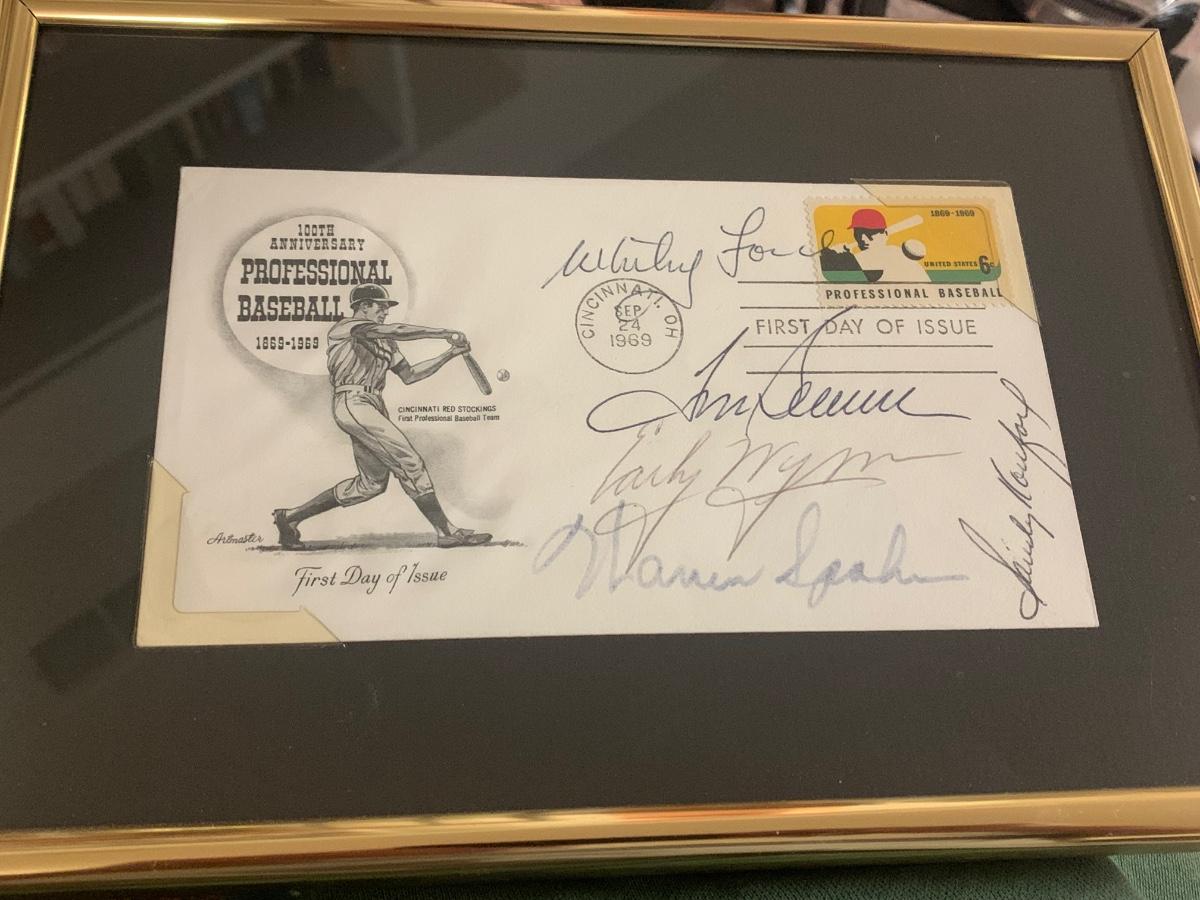 100TH
ANNIVERSARY
PROFESSIONAL
BASEBALL
1869-1969
CINCINNATI RED STOCKINGS
First Professional Baseball Team
Artmaster
First Day of Issue
Whitey Ford
1869-1969
UNITED STATES 6c
PROFESSIONAL BASEBALL
CINCINNATI, OH
SEP
24
1969
FIRST DAY OF ISSUE
Tom Seaver
Early Wynn
Warren Spahn
Sandy Koufax